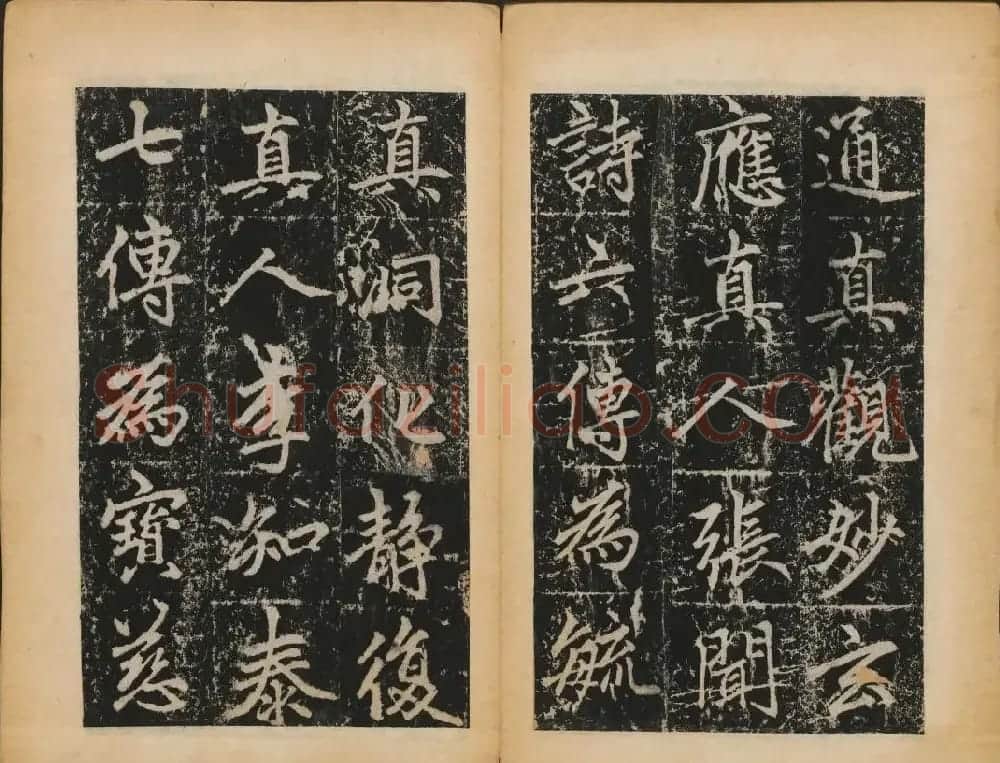 通真觀妙玄
應真人張聞
詩六傳為毓
真洞化静復
真人李知泰
七傳為寶慈
Shufaziliao.COM